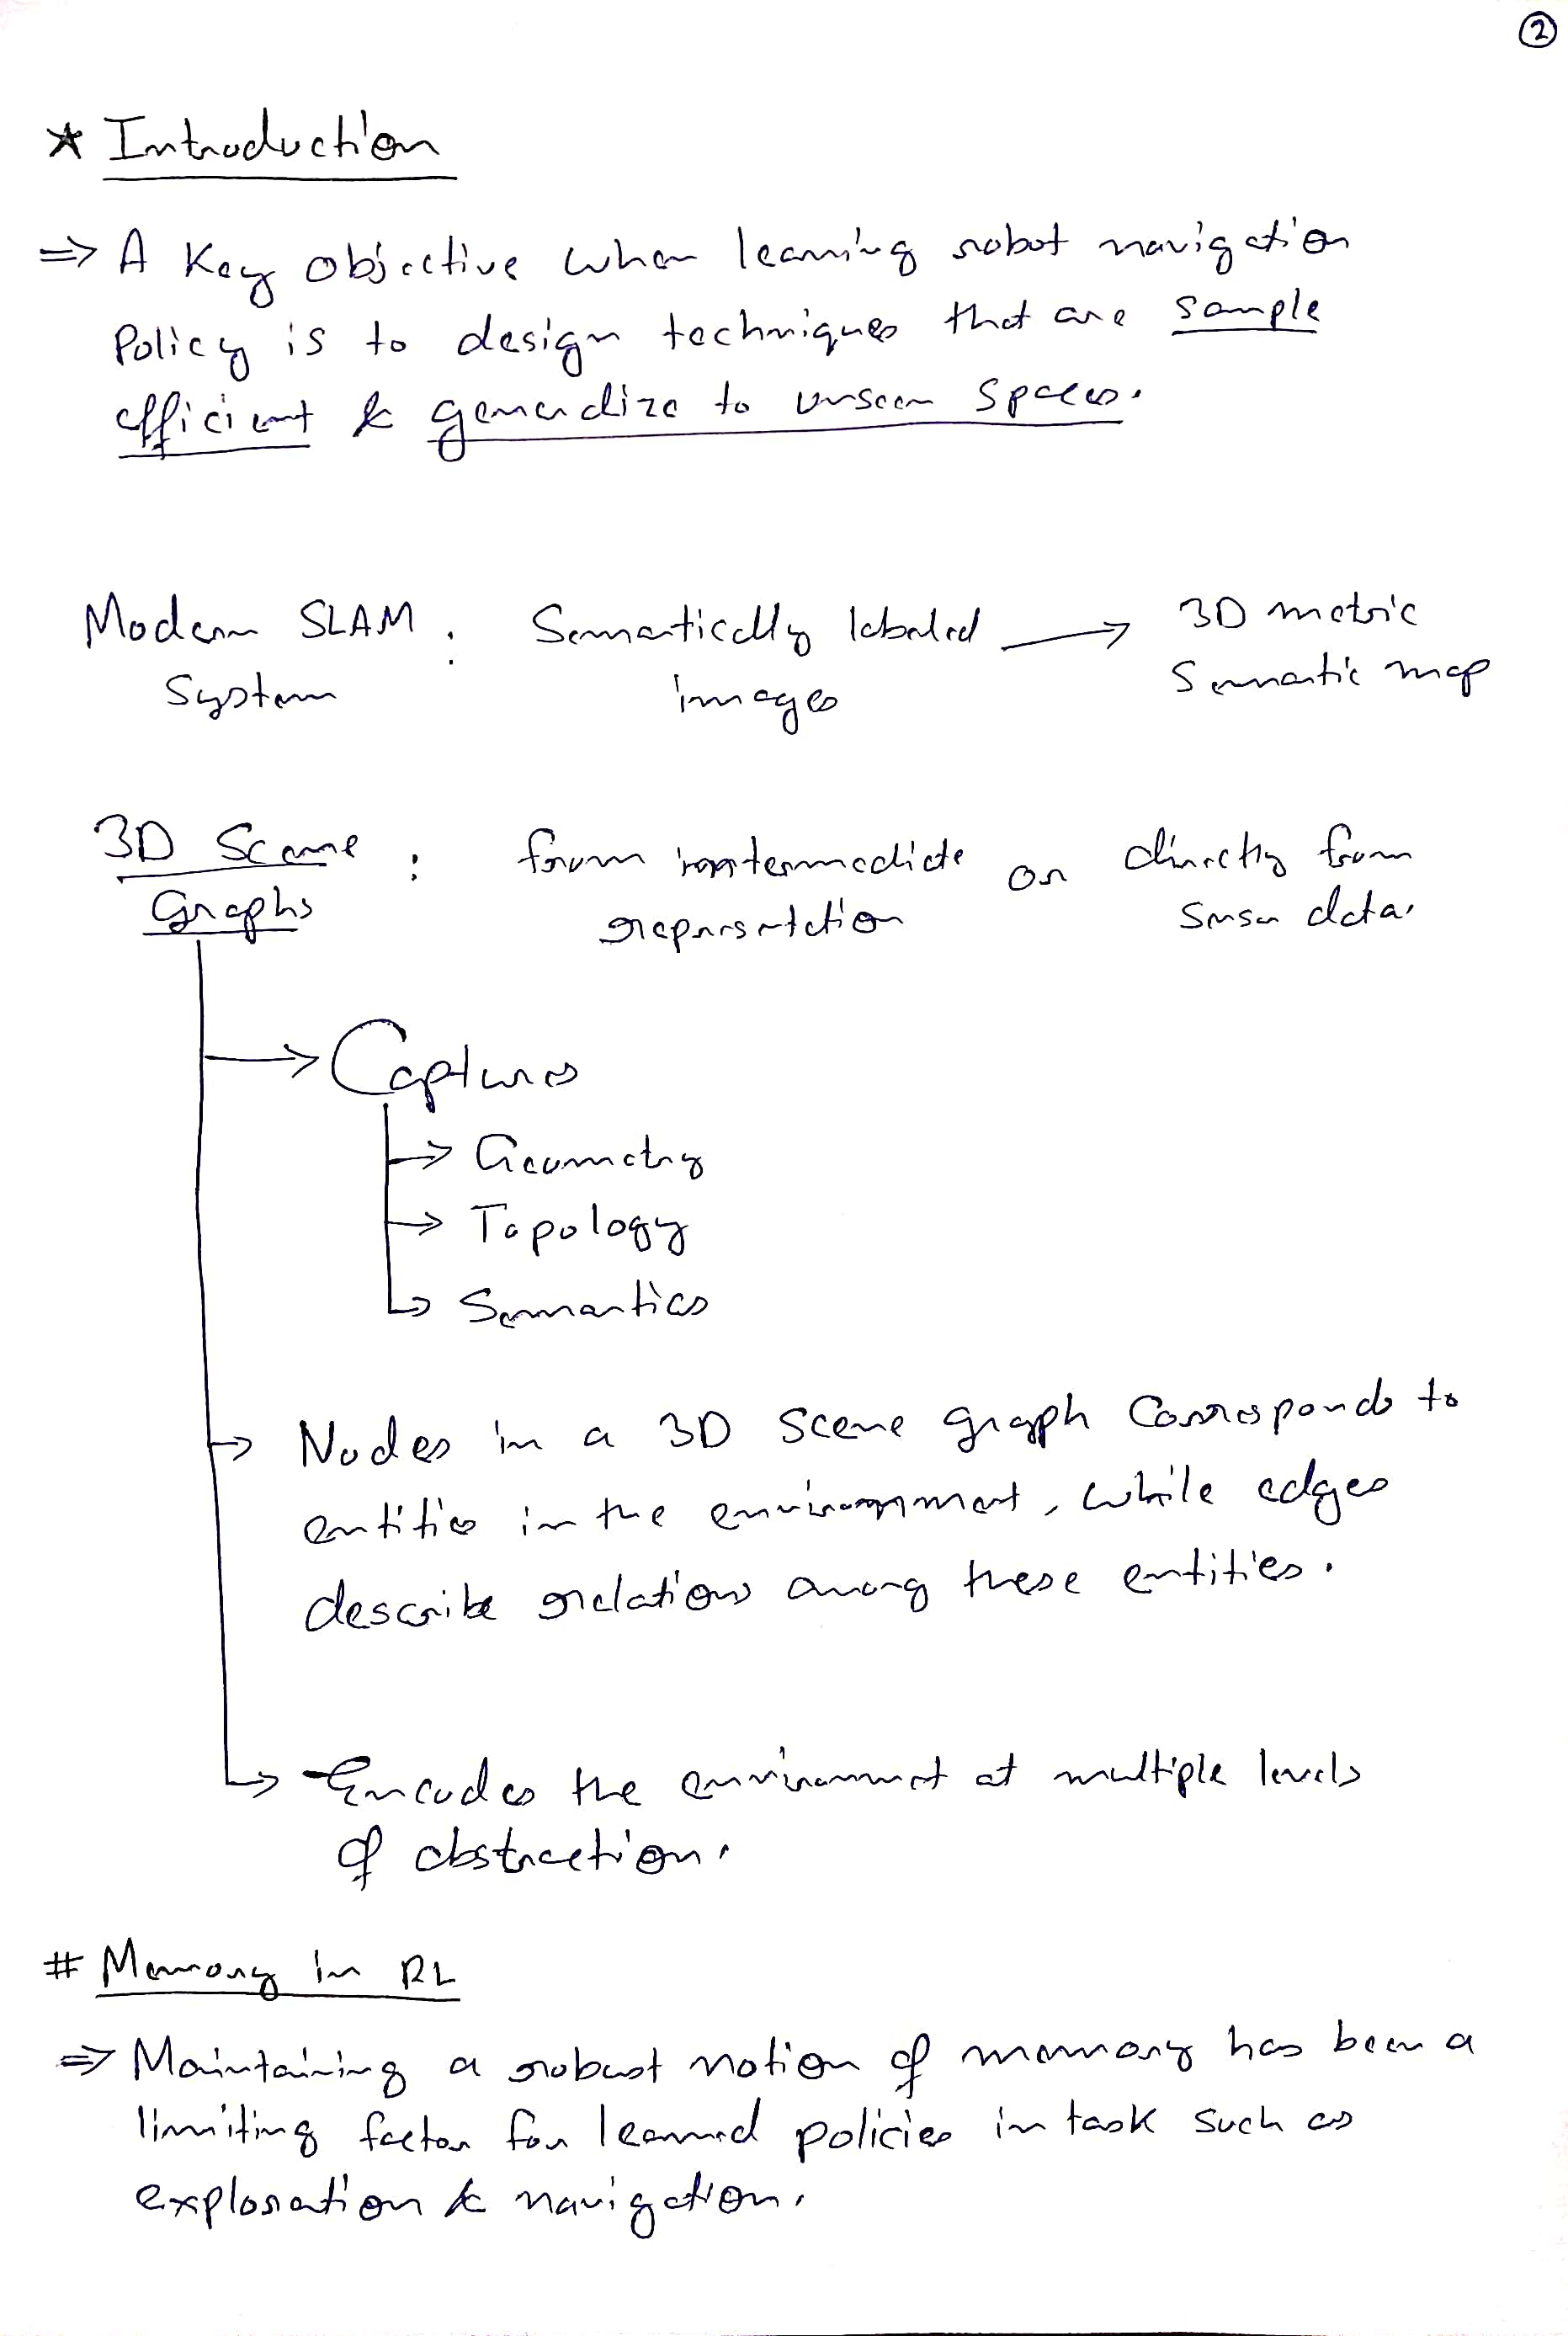 ②
* Introduction
⇒ A Key Objective when learning robot navigation
Policy is to design techniques that are sample
efficient & generalize to unseen spaces.
Modern SLAM : Semantically labeled → 3D metric
System images Semantic map
3D Scene : from intermediate or directly from
Graphs representation Sensor data.
→ Captures
→ Geometry
→ Topology
→ Semantics
→ Nodes in a 3D Scene graph Corresponds to
entities in the environment, while edges
describe relations among these entities.
→ Encodes the environment at multiple levels
of abstraction.
# Memory in RL
⇒ Maintaining a robust notion of memory has been a
limiting factor for learned policies in task such as
exploration & navigation.